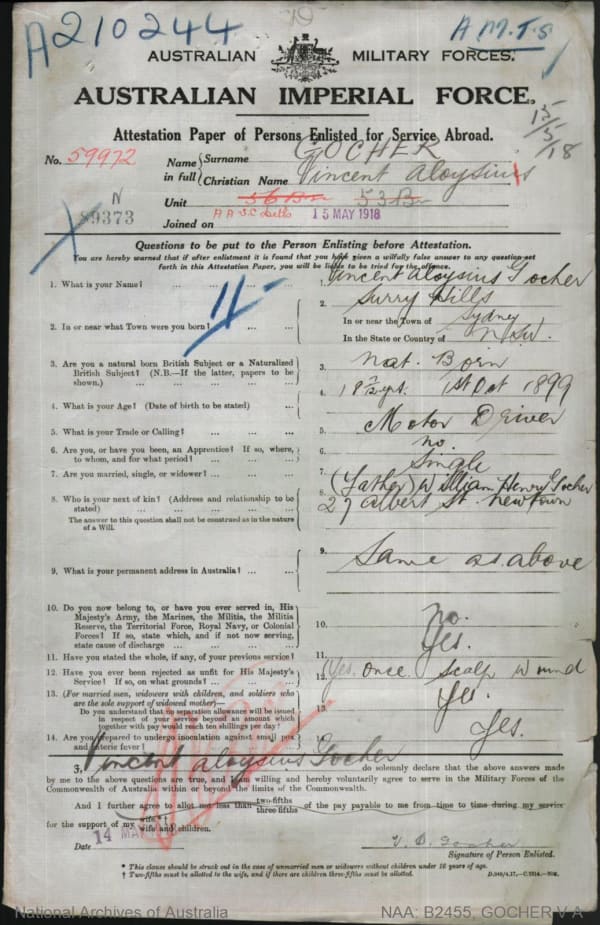 A210244
A.M.T.S
AUSTRALIAN MILITARY FORCES.
AUSTRALIAN IMPERIAL FORCE.
15/5/18
Attestation Paper of Persons Enlisted for Service Abroad.
No. 59972
Name in full
Surname GOCHER
Christian Name Vincent Aloysius
N
89373
Unit 53 Bn
A A S.C Dells 15 MAY 1918
Joined on
Questions to be put to the Person Enlisting before Attestation.
You are hereby warned that if after enlistment it is found that you have given a wilfully false answer to any question set
forth in this Attestation Paper, you will be liable to be tried for the offence.
1. What is your Name? ... ... ... ... 1. Vincent Aloysius Gocher
2. In or near what Town were you born? ... ... 2. Surry Hills
In or near the Town of Sydney
In the State or Country of N.S.W.
3. Are you a natural born British Subject or a Naturalized
British Subject? (N.B.—If the latter, papers to be
shown.) ... ... ... ... 3. Nat. Born
4. What is your Age? (Date of birth to be stated) ... 4. 18 7/12 yrs. 1st Oct 1899
5. What is your Trade or Calling? ... ... ... 5. Motor Driver
6. Are you, or have you been, an Apprentice? If so, where,
to whom, and for what period? ... ... ... 6. no.
7. Are you married, single, or widower? ... ... 7. Single
8. Who is your next of kin? (Address and relationship to be
stated) ... ... ... ... 8. (Father) William Henry Gocher
27 Albert St. Newtown
The answer to this question shall not be construed as in the nature
of a Will.
9. What is your permanent address in Australia? ... ... 9. Same as above
10. Do you now belong to, or have you ever served in, His
Majesty's Army, the Marines, the Militia, the Militia
Reserve, the Territorial Force, Royal Navy, or Colonial
Forces? If so, state which, and if not now serving,
state cause of discharge ... ... ... 10. no.
11. Have you stated the whole, if any, of your previous service? 11. Yes.
12. Have you ever been rejected as unfit for His Majesty's
Service? If so, on what grounds? ... ... 12. (Yes. once Scalp wound
13. (For married men, widowers with children, and soldiers who
are the sole support of widowed mother)—
Do you understand that no separation allowance will be issued
in respect of your service beyond an amount which
together with pay would reach ten shillings per day? 13. Yes.
14. Are you prepared to undergo inoculation against small pox
and enteric fever? 14. Yes.
I, Vincent Aloysius Gocher do solemnly declare that the above answers made
by me to the above questions are true, and I am willing and hereby voluntarily agree to serve in the Military Forces of the
Commonwealth of Australia within or beyond the limits of the Commonwealth.
And I further agree to allot not less than two-fifths three-fifths of the pay payable to me from time to time during my service
for the support of my wife.† wife and children.
Date 14 MAY
V. A. Gocher
Signature of Person Enlisted.
* This clause should be struck out in the case of unmarried men or widowers without children under 16 years of age.
† Two-fifths must be allotted to the wife, and if there are children three-fifths must be allotted.
National Archives of Australia
NAA: B2455, GOCHER V A